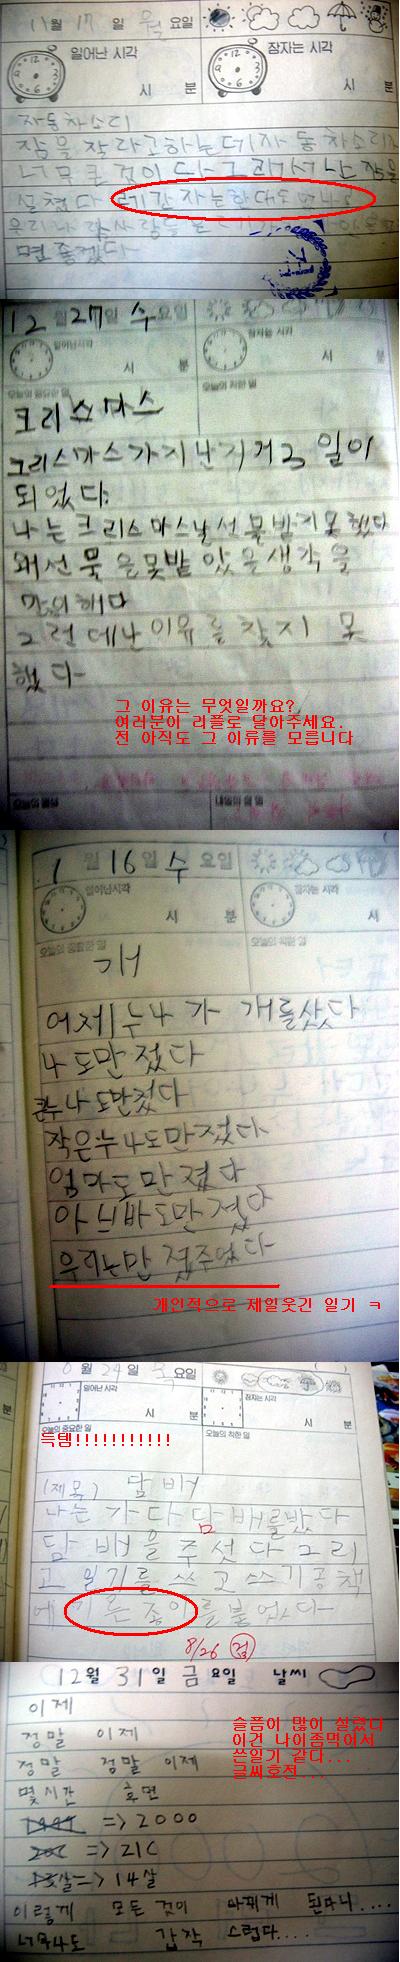 11월 17일 월요일
일어난 시각
잠자는 시각
시 분
시 분
자동차소리
잠을 잘라고하는데자동차소리가
너무 큰 것이다 그래서 난 잠을
설쳤다
면 좋겠다
12월 27일 수요일
일어난시각
잠자는 시각
시 분
시 분
오늘의 중요한 일
오늘의 착한 일
크리스마스
크리스마스가지난지거3일이
되었다.
나는크리스마스날선물받지못했다
왜선물을못받았을생각을
만이해다
그런데난이유를찾지 못
했다
그 이유는 무엇일까요?
여러분이 리플로 달아주세요.
전 아직도 그 이류를 모릅니다
1월 16일 수요일
일어난시각
잠자는 시각
시 분
시
오늘의 중요한 일
오늘의 착한 일
개
어제누나가 개를샀다
나도만졌다
큰누나도만젔다
작은누나도만졌다
엄마도만졌다
아빠도만졌다
우리는만졌주었다
개인적으로 제일웃긴 일기 ㅋ
월 24일 목요일
일어난 시각
잠자는 시각
시 분
시 분
오늘의 중요한 일
오늘의 착한 일
득템!!!!!!!!!!!
(제목) 담배
나는 가다담배를봤다
담배을주섯다그리
고 일기를 쓰고쓰기공책
에 기른종이를붙었다
8/26 검
12월 31일 금요일 날씨
이제
정말 이제
정말 정말 이제
몇시간 후면
슬픔이 많이 실렸다
이건 나이좀먹어서
쓴일기 같다...
글씨호전...
1999 => 2000
20C => 21C
13살 => 14살
이렇게 모든 것이 바뀌게 된다니....
너무나도 갑작스럽다....